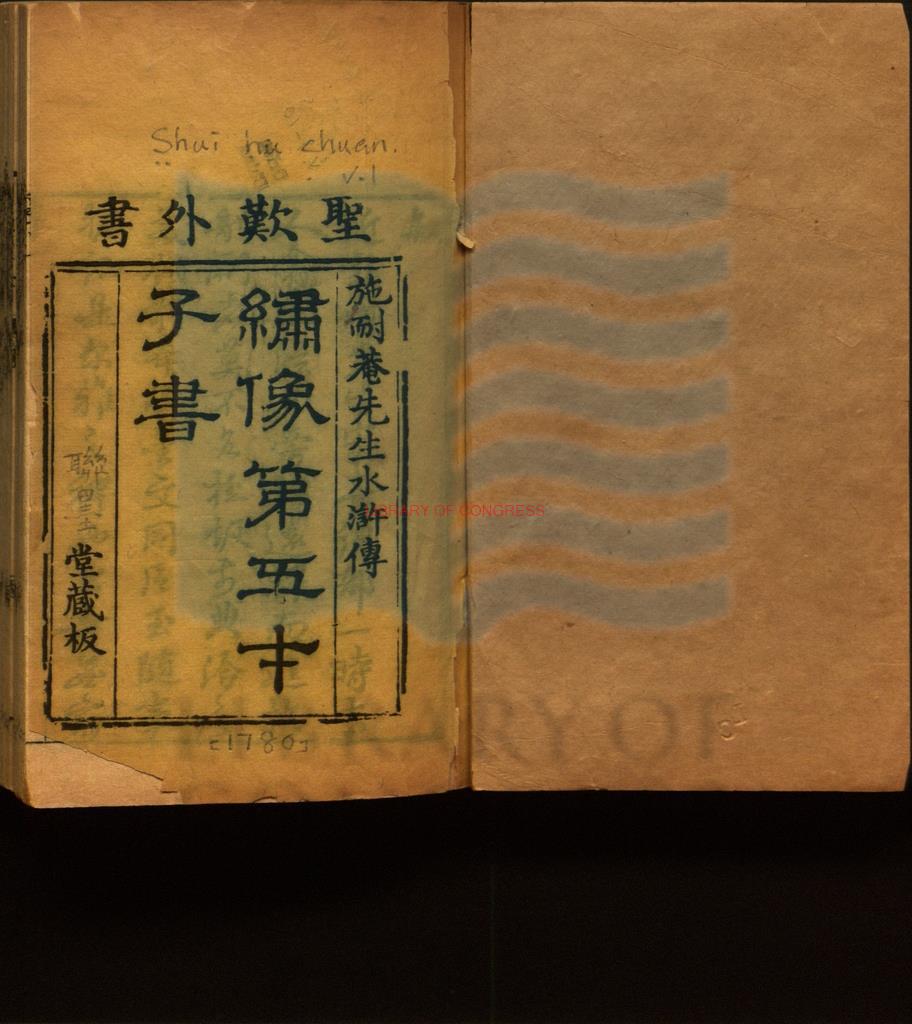 Shui hu chuan.
v.1
聖歎外書
施耐菴先生水滸傳
繡像第五才
子書
聯墨堂藏板
[1780]
LIBRARY OF CONGRESS